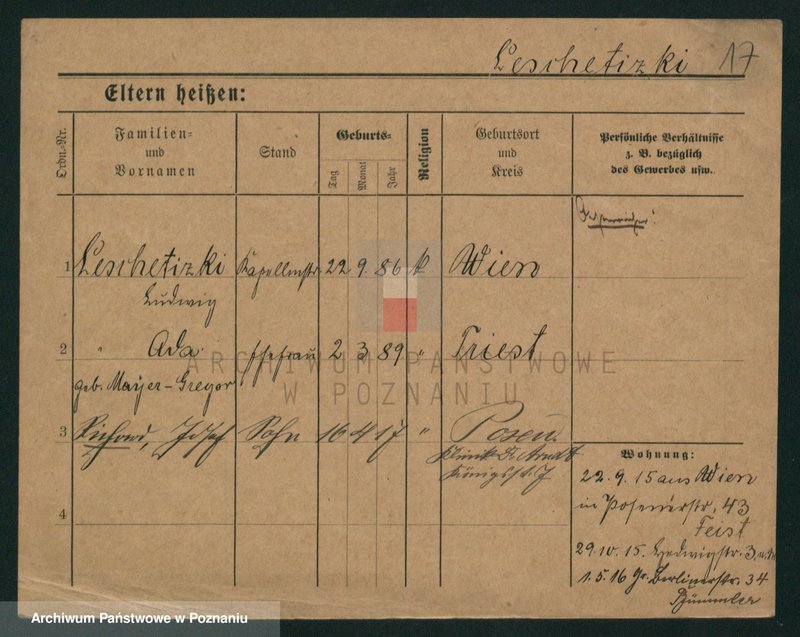 Leschetizki 17
Eltern heißen:
Ordn.-Nr.
Familien-
und
Vornamen
Stand
Geburts-
Tag
Monat
Jahr
Religion
Geburtsort
und
Kreis
Persönliche Verhältnisse
z. B. bezüglich
des Gewerbes usw.
Oesterreicher!
1 Leschetizki Kapellmstr 22 9 86 k Wien
Ludwig
2 " Ada Ehefrau 2 3 89 " Triest
geb. Mayer-Gregor
3 Richard, Josef Sohn 16 4 17 " Posen
Klinik Dr. Arndt
Königstr. 7
4
Wohnung:
22.9.15 aus Wien
in Posenerstr. 43
Feist
29.10.15. Hedwigstr. 3,
1.5.16 Gr. Berlinerstr. 34
ARCHIWUM PAŃSTWOWE
W POZNANIU
Archiwum Państwowe w Poznaniu